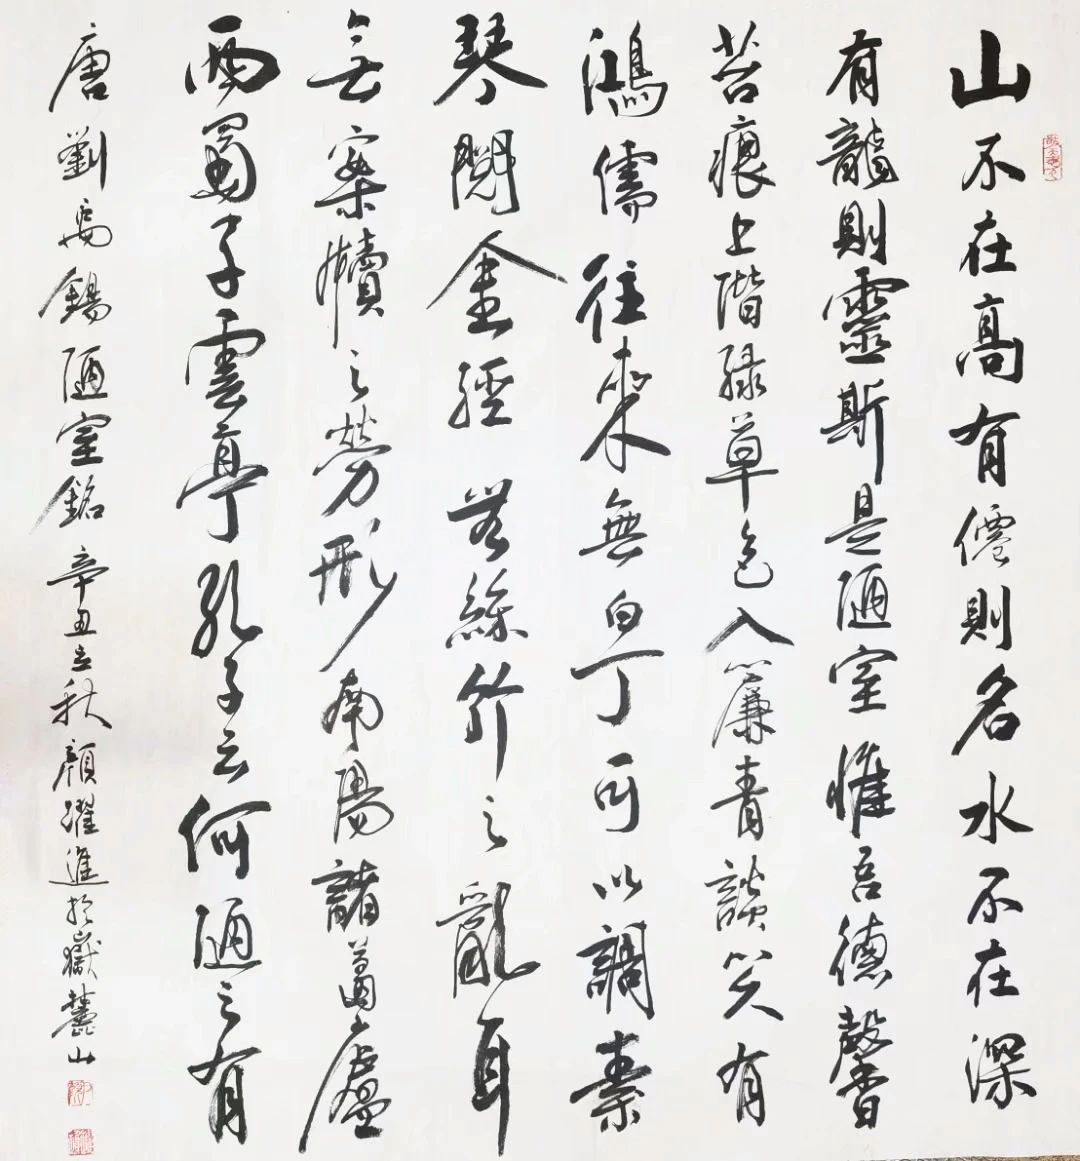 山不在高有僊則名水不在深
有龍則靈斯是陋室惟吾德馨
苔痕上階緑草色入簾青談笑有
鴻儒往來無白丁可以調素
琴閱金經無絲竹之亂耳
无案牘之勞形南陽諸葛廬
西蜀子雲亭孔子云何陋之有
唐劉禹錫陋室銘辛丑立秋顏躍進於嶽麓山